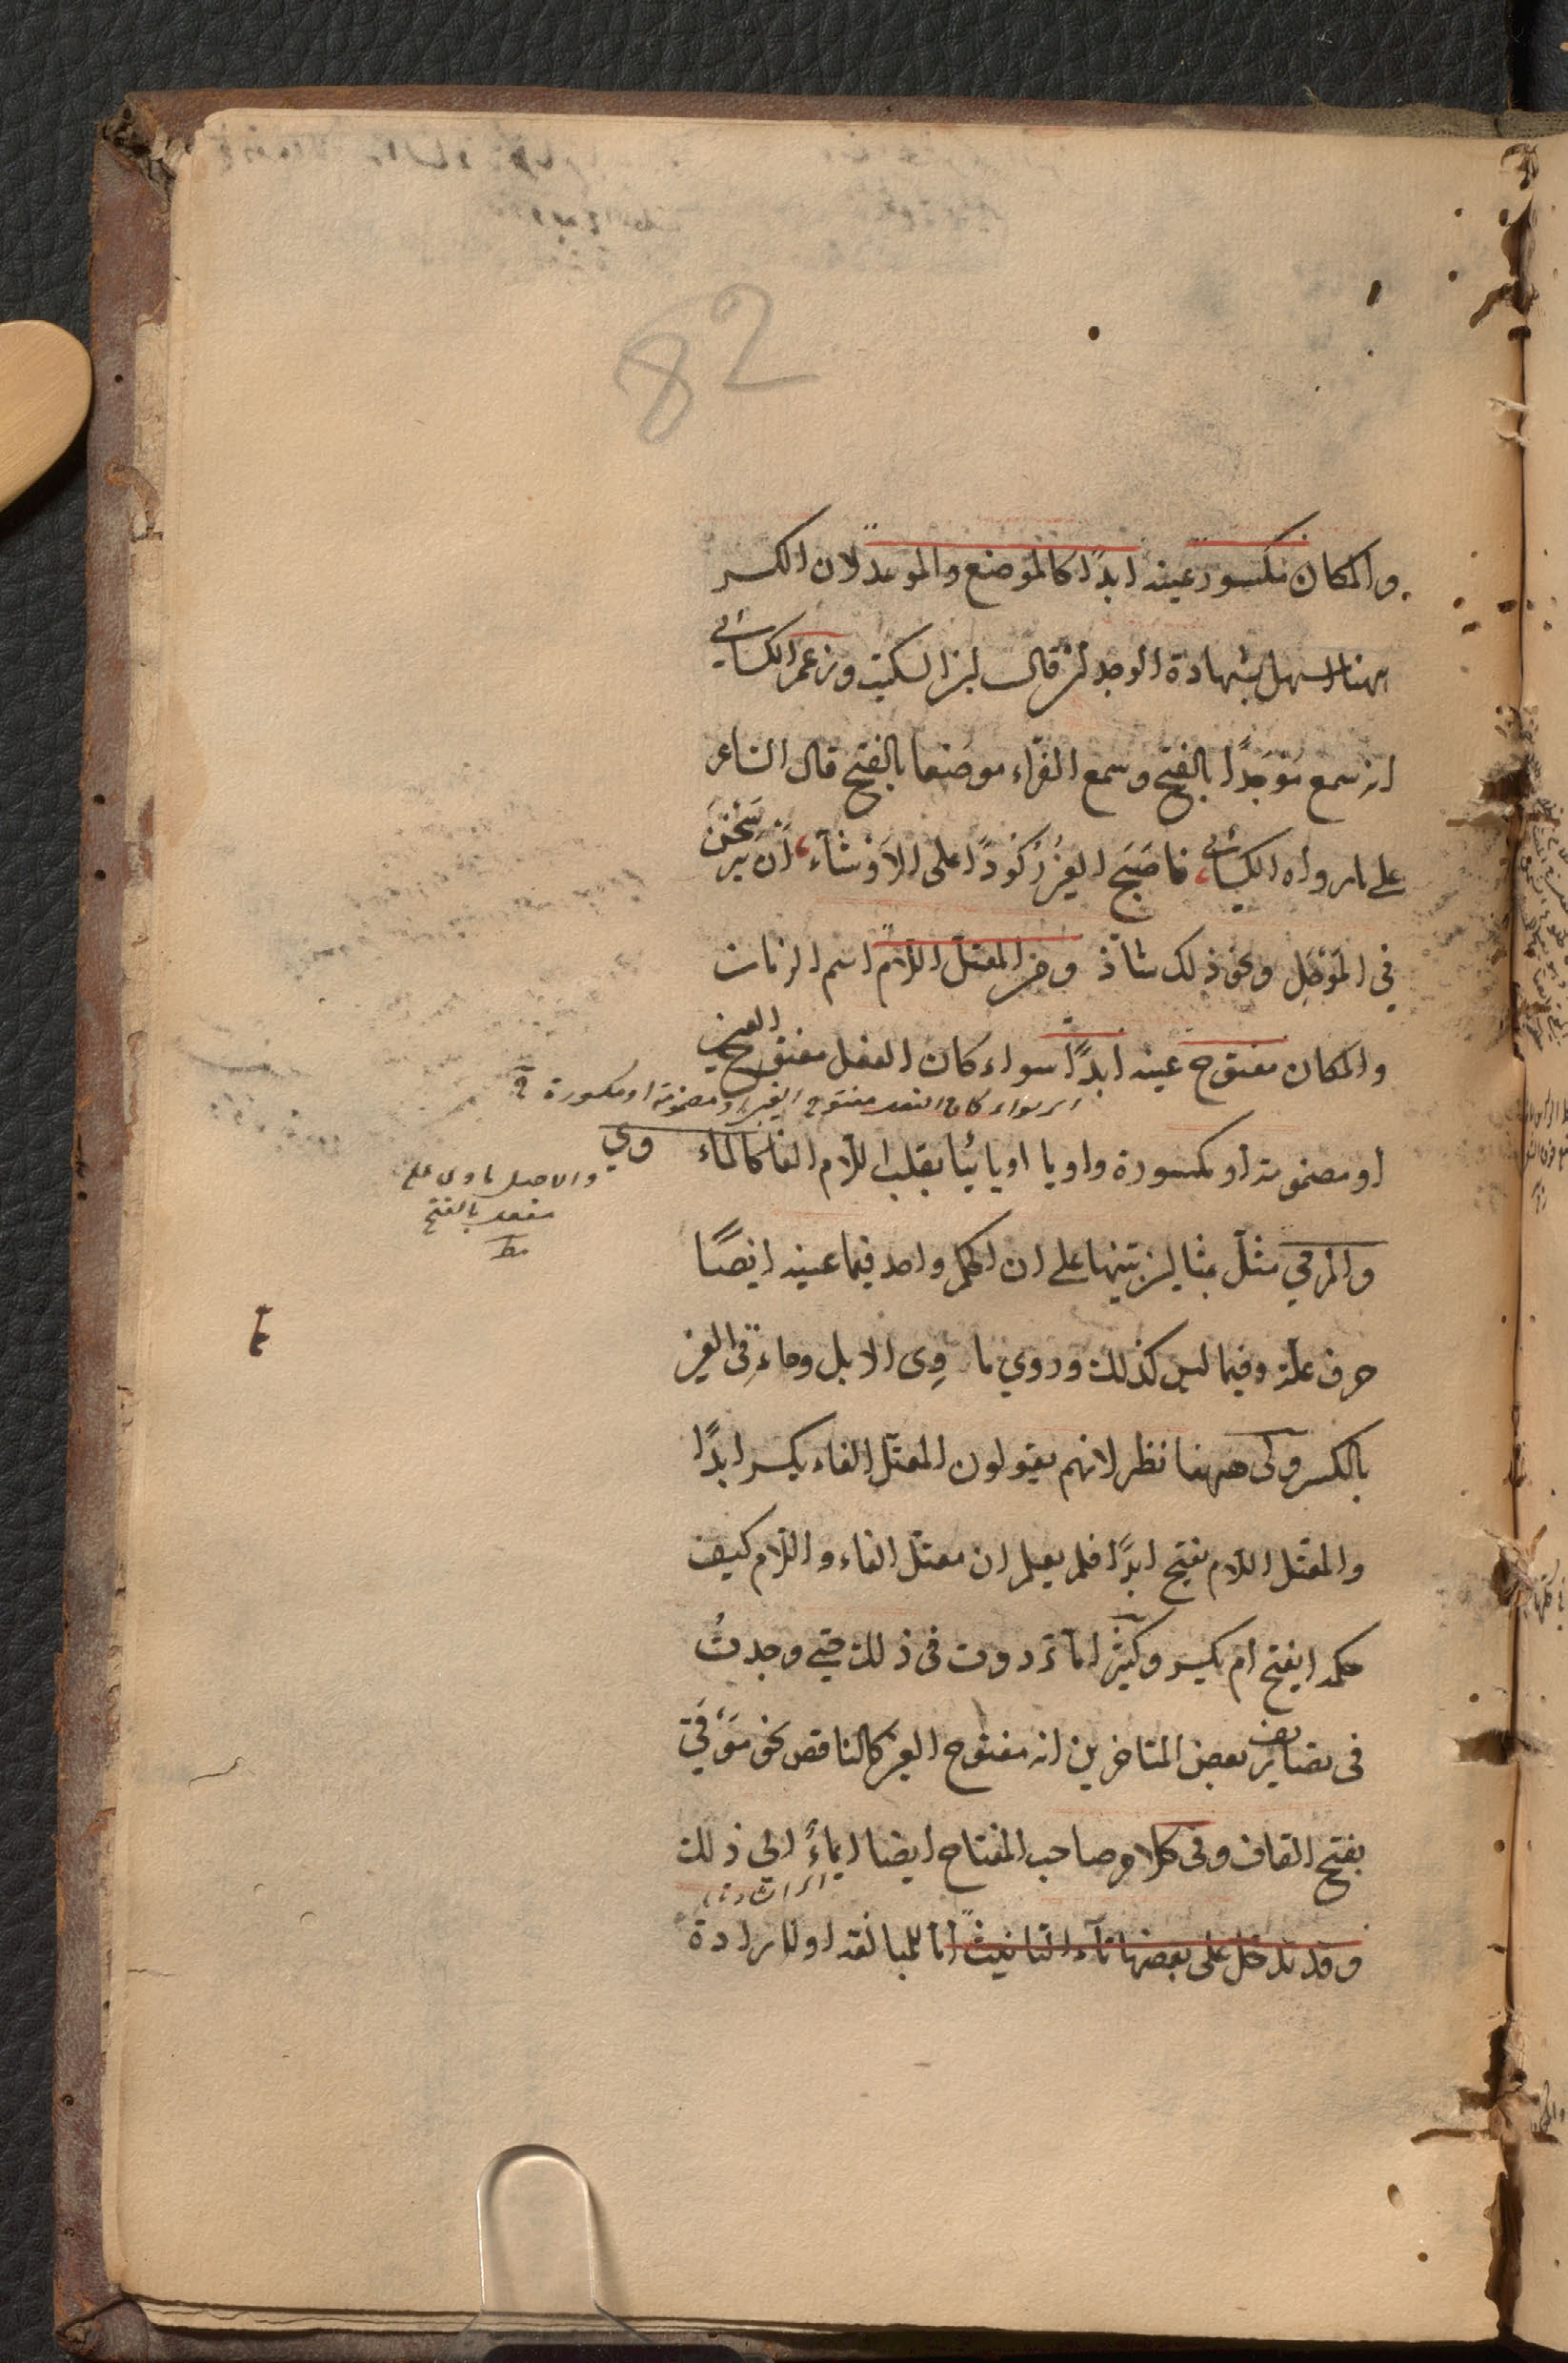 82
والمكان مكسور عينه ابدًا كالموضع والموعد لان الكسر
ههنا اسهل بشهادة الوجدان قال ابن السكيت وزعم الكسائي
انه سمع مَوْجَدًا بالفتح وسمع الفرّاء موضَعا بالفتح قال الشاعر
على ما رواه الكسائي، فاصبح العِيْنُ رُكُودًا على الاَوْشآء، اَن يَرْسَخْنَ
في المَوْحَلِ ونحو ذلك شاذّ ومن المعتلّ اللّام اسم الزمان
والمكان مفتوح عينه ابدًا سواء كان الفعل مفتوح العين
اى سواء كان الفعل مفتوح العين او مضمومة او مكسورة
او مضمومة او مكسورة واويا او يائيًا بقلب اللّام الفا كالماء وي
والاصل ماوى على
مفعل بالفتح
والمرمي مثّل بمثالين تنبيها على ان الحكم واحد فيما عينه ايضًا
حرف علّة وفيما ليس كذلك وروي ماوِى الابل وماءقِى العين
بالكسر ولى ههنا نظر لانهم يقولون المعتلّ الفاء يكسر ابدًا
والمعتّل اللّام يفتح ابدًا فلم يعلم ان معتلّ الفاء واللّام كيف
حكمه ايفتح ام يكسر وكثيرًا مّا تردّدت فى ذلك حتى وجدتُ
فى تصانيف بعض المتاخرين انه مفتوح العين كالناقص نحو مَوْقَي
بفتح القاف وفى كلام صاحب المفتاح ايضا ايماءٌ الى ذلك
وقد تدخل على بعضها تاء التانيث امّا للمبالغة او لارادة